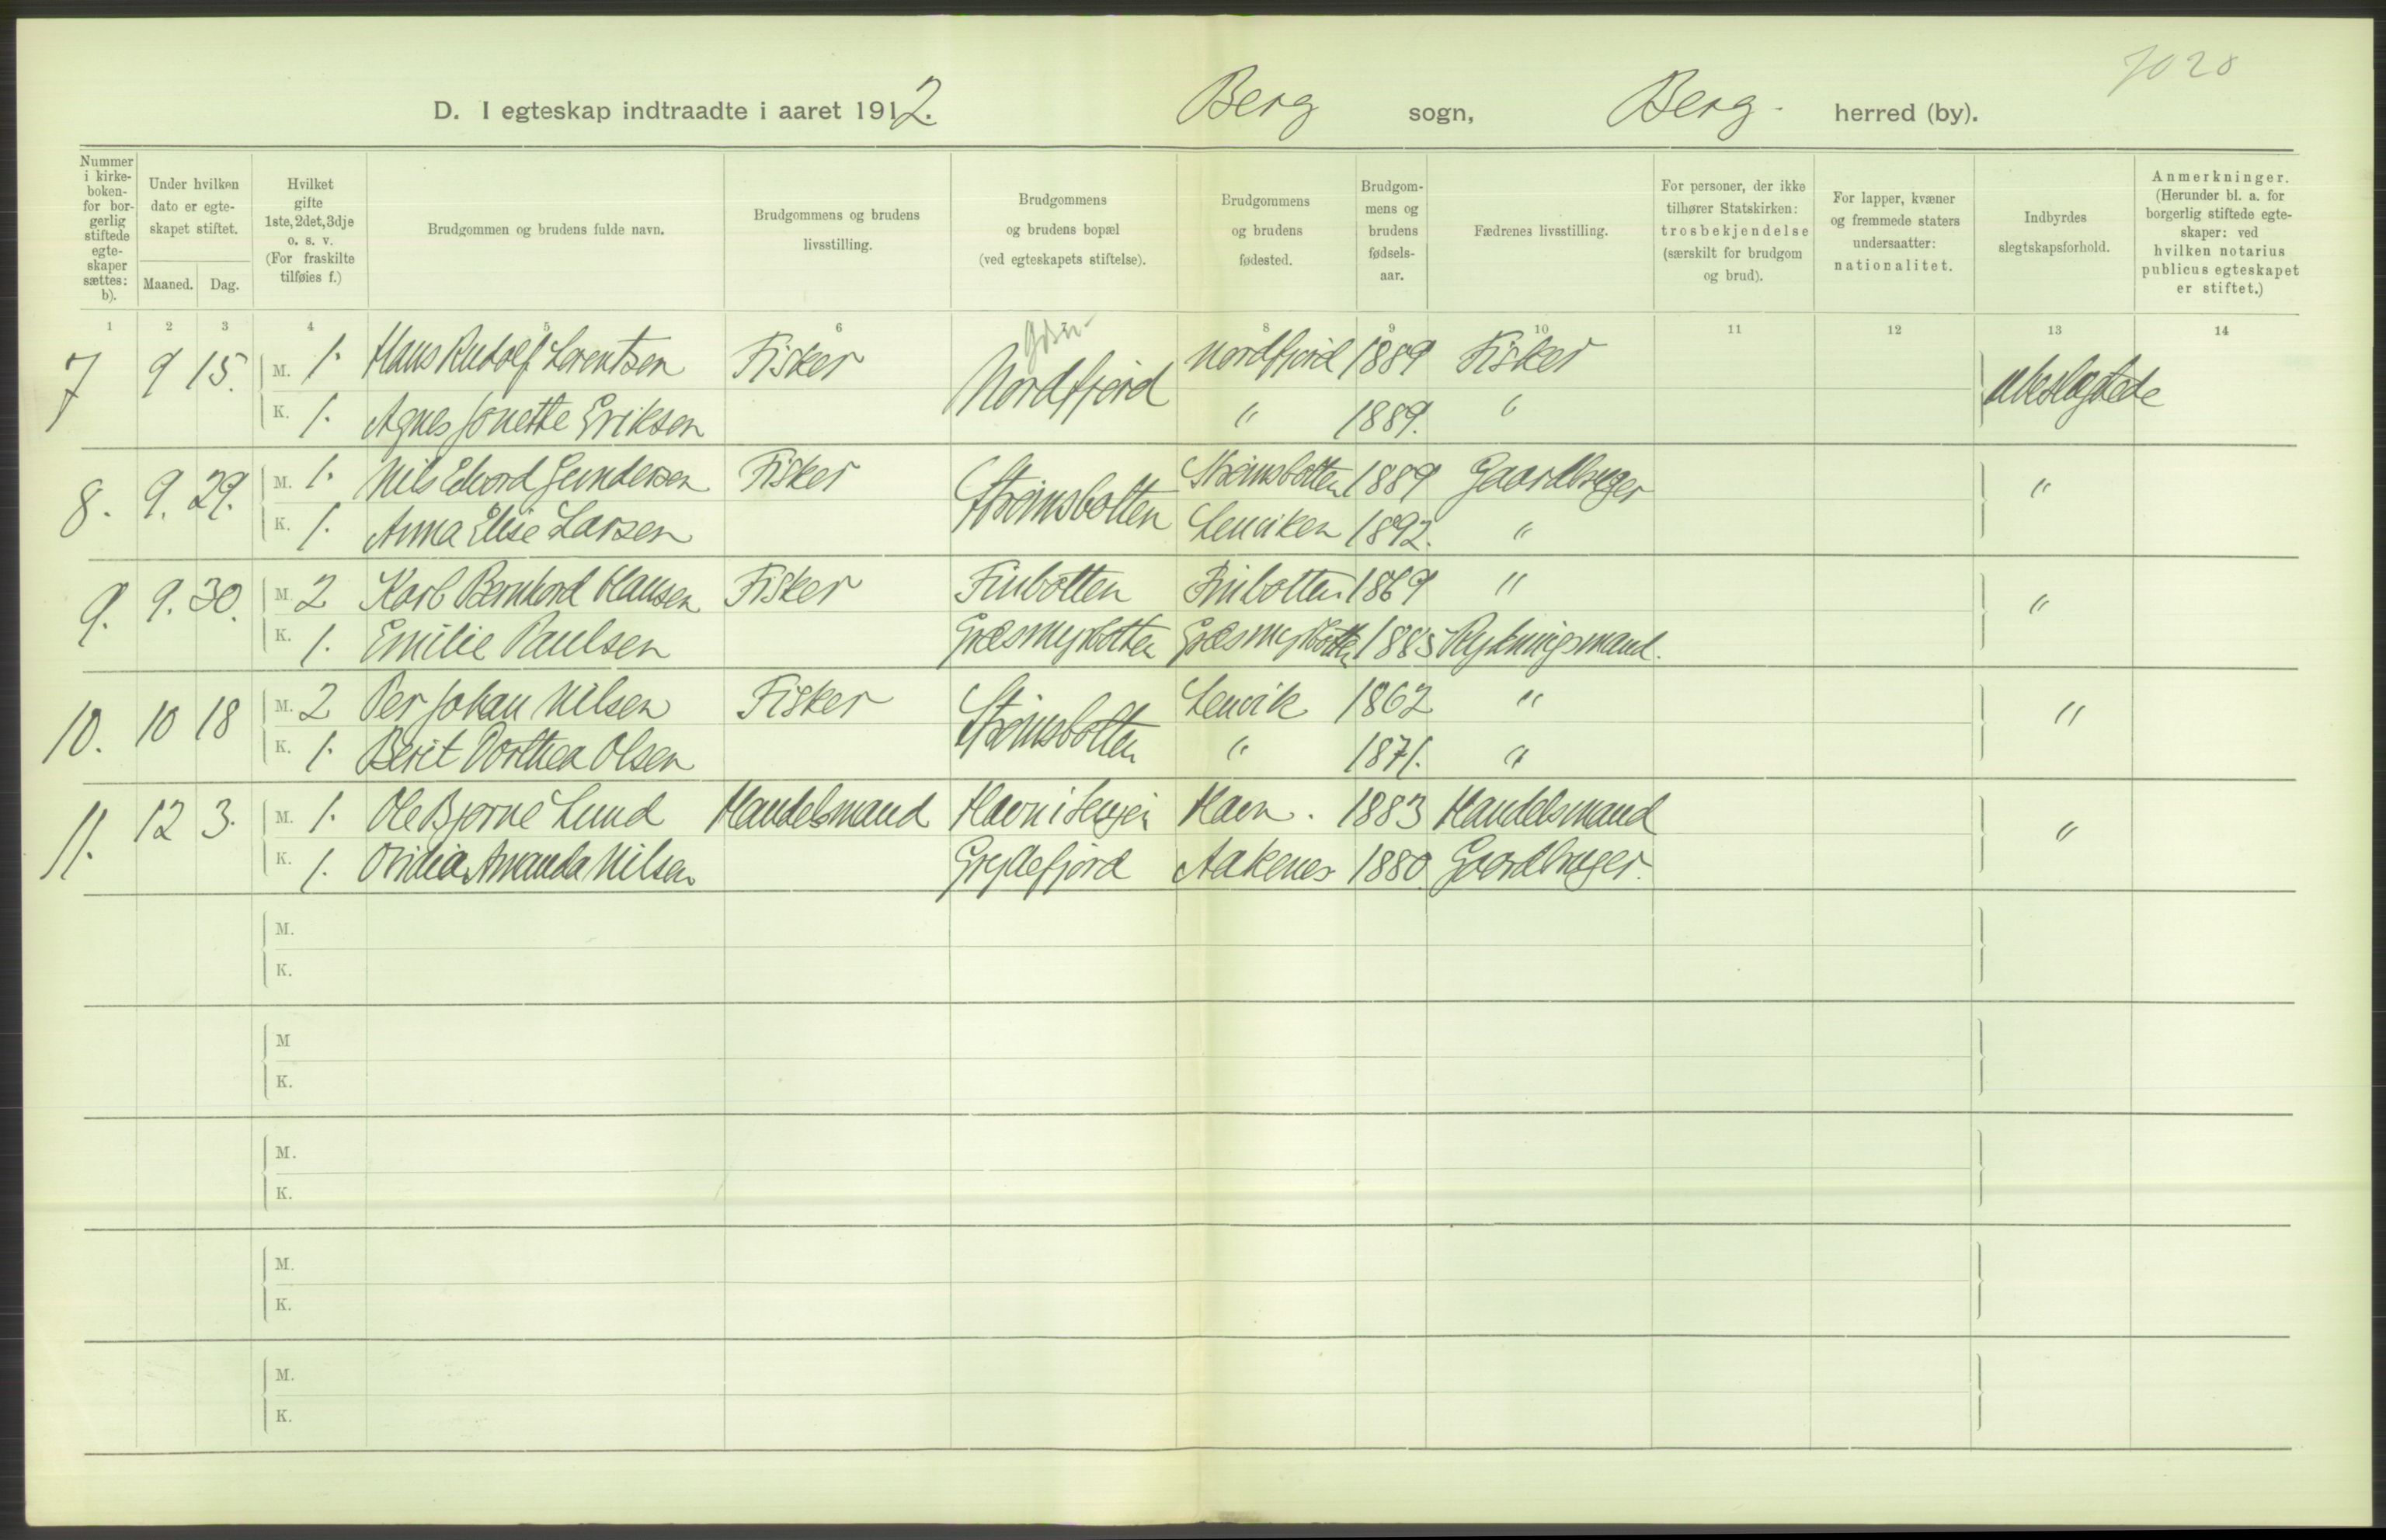 7028
D. I egteskap indtraadte i aaret 1912. Berg sogn, Berg. herred (by).
Nummer i kirke-boken- for bor-gerlig stiftede egte-skaper sættes: b).
Under hvilken dato er egte-skapet stiftet.
Maaned. Dag.
Hvilket gifte 1ste, 2det, 3dje o. s. v. (For fraskilte tilføies f.)
Brudgommen og brudens fulde navn.
Brudgommens og brudens livsstilling.
Brudgommens og brudens bopæl (ved egteskapets stiftelse).
Brudgommens og brudens fødested.
Brudgom-mens og brudens fødsels-aar.
Fædrenes livsstilling.
For personer, der ikke tilhører Statskirken: trosbekjendelse (særskilt for brudgom og brud).
For lapper, kvæner og fremmede staters undersaatter: nationalitet.
Indbyrdes slegtskapsforhold.
Anmerkninger. (Herunder bl. a. for borgerlig stiftede egte-skaper: ved hvilken notarius publicus egteskapet er stiftet.)
1 2 3 4 5 6 8 9 10 11 12 13 14
7 9 15. M. 1. Hans Rudolf Lorentsen Fisker Nordfjord Nordfjord 1889 Fisker ubeslægtede
K. 1. Agnes Jonette Eriksen " 1889. "
8. 9. 29. M. 1. Nils Edvard Gundersen Fisker Strømsbotten Strømsbotten 1889 Gaardbruger "
K. 1. Anna Elise Larsen Lenviken 1892. "
9. 9. 30. M. 2 Karl Bernhard Hansen Fisker Finbotten Finbotten 1869 " "
K. 1. Emilie Paulsen Græsmyrbotten Græsmyrbotten 1885 Rydningsmand.
10. 10 18 M. 2 Per Johan Nilsen Fisker Strømsbotten Lenvik 1862 " "
K. 1. Berit Dorthea Olsen " 1871. "
11. 12 3. M. 1. Ole Bjarne Lund Handelsmand Havn i Senjen Havn. 1883 Handelsmand "
K. 1. Ovidia Amanda Nilsen Gryllefjord Aakenes 1880 Gaardbruger.
M.
K.
M
K.
M.
K.
M.
K.
M.
K.